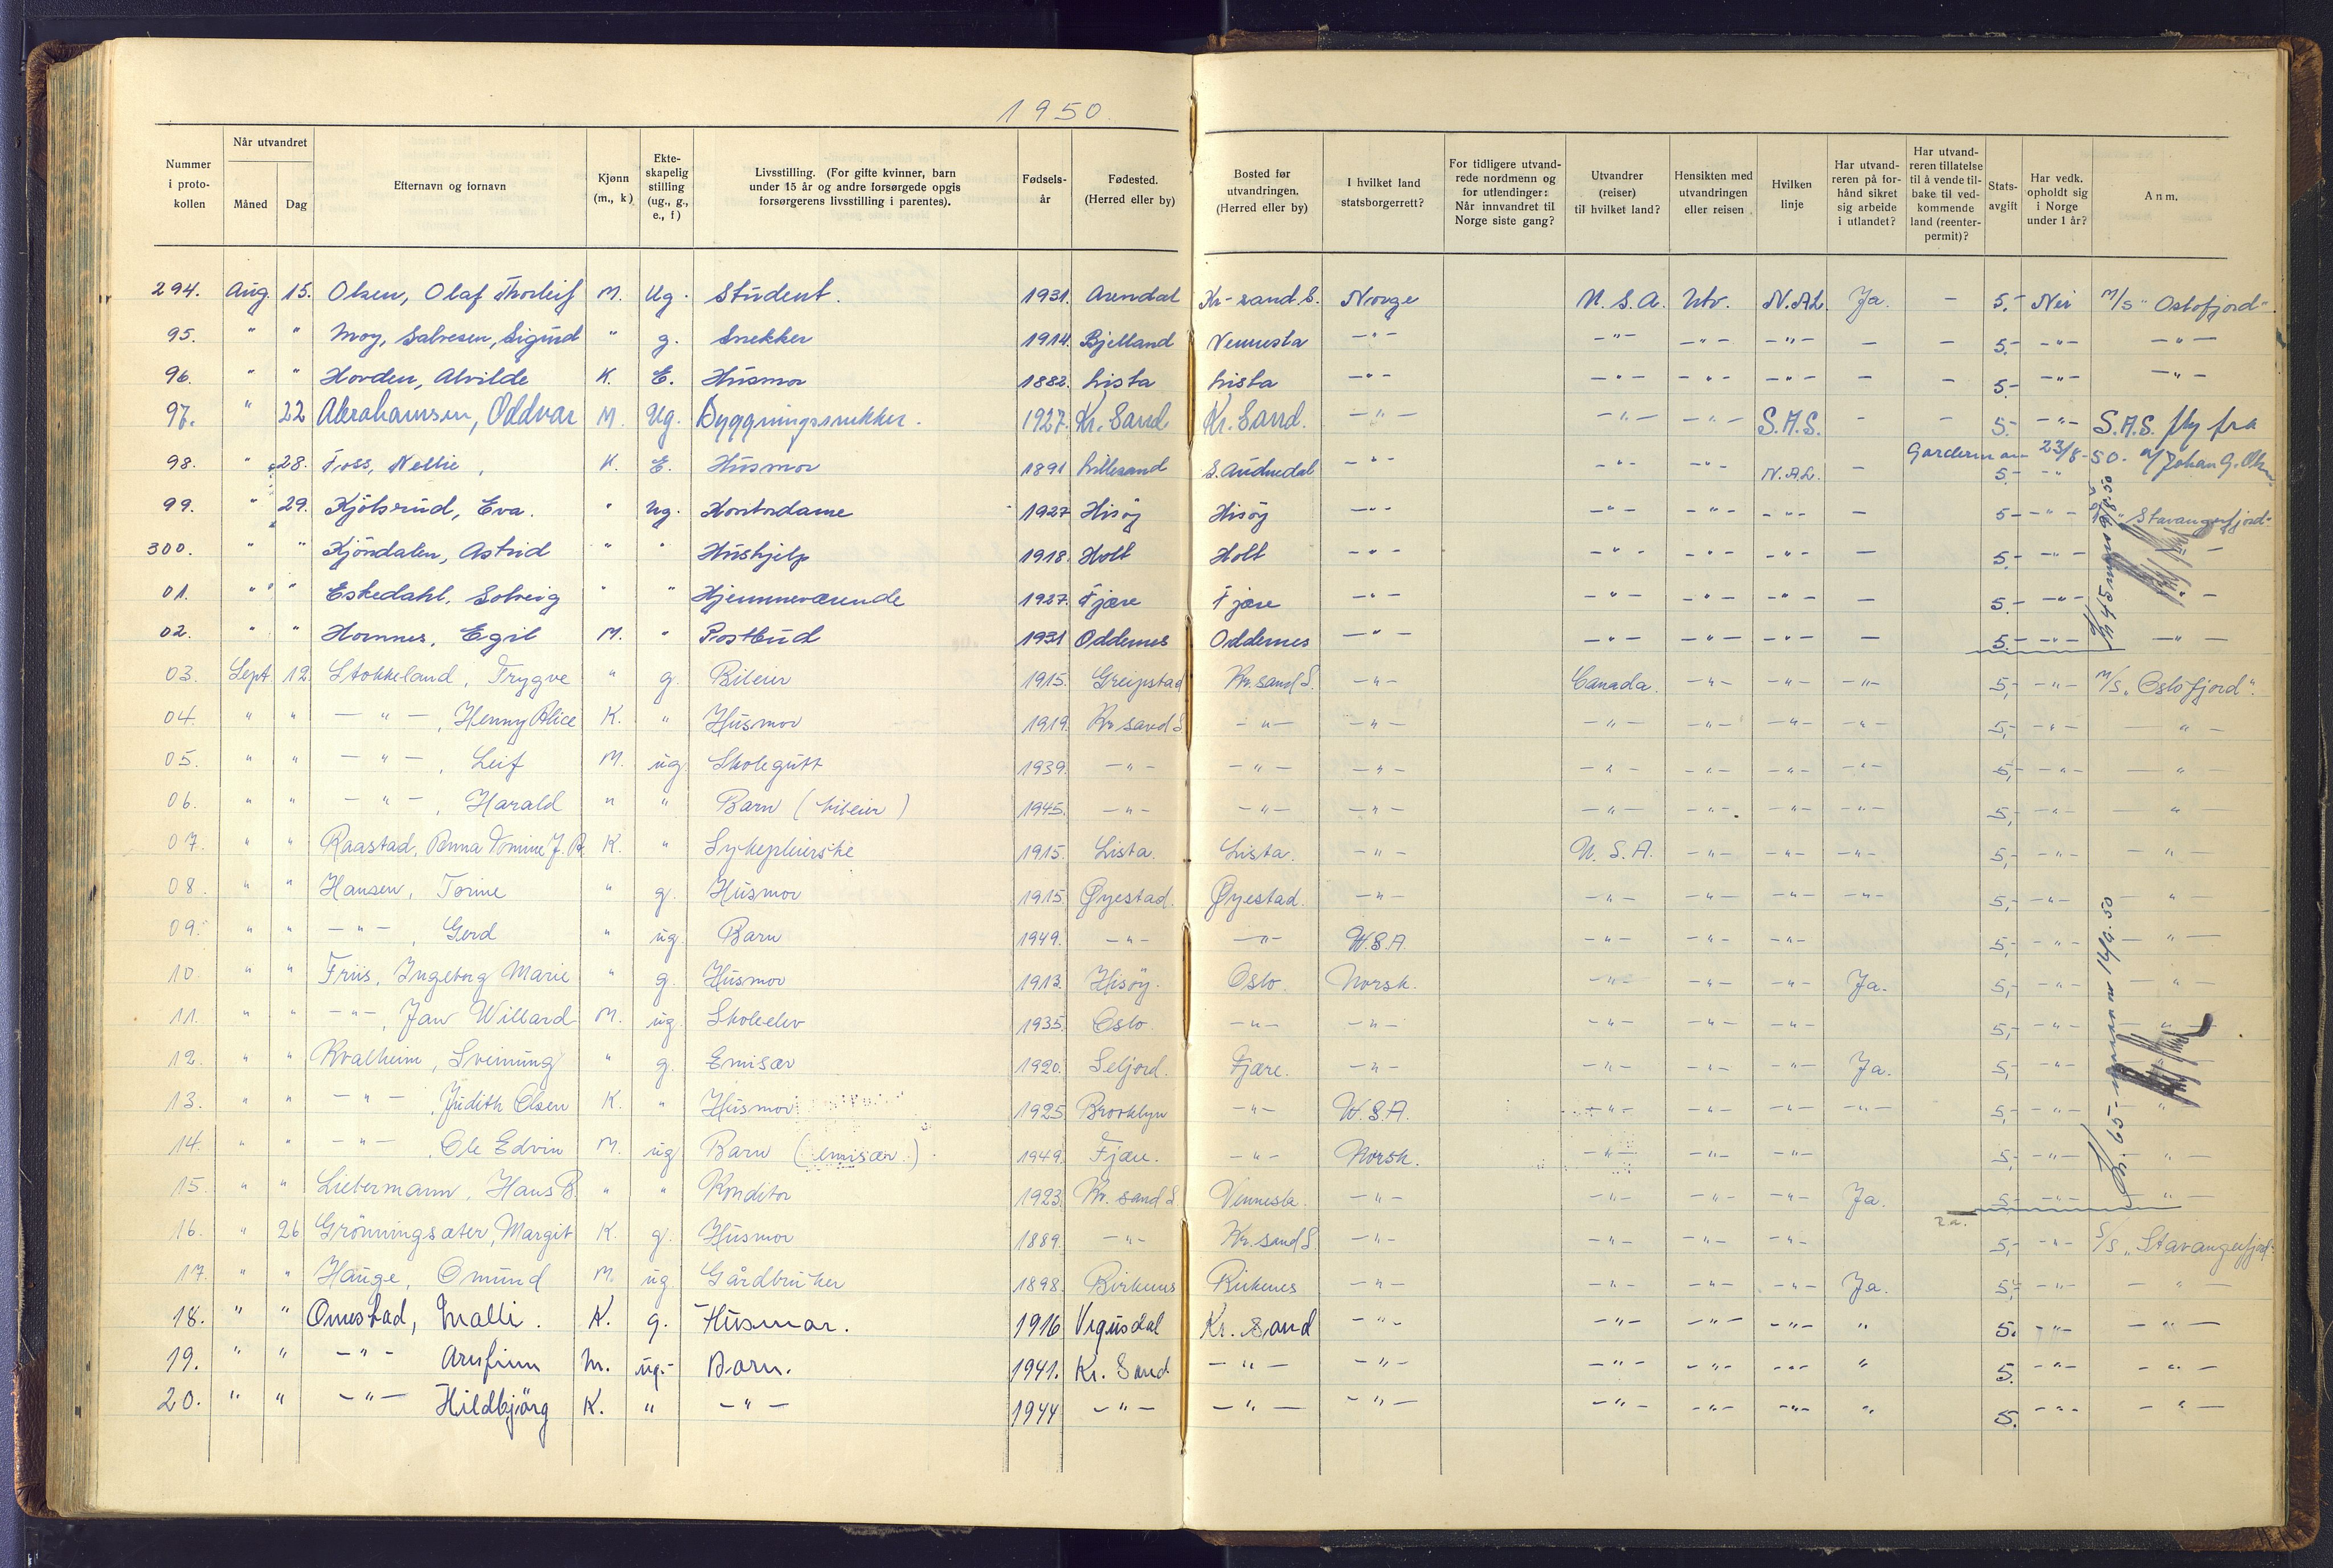 1950
Nummer i proto- kollen | Når utvandret Måned Dag | Efternavn og fornavn | Kjønn (m., k) | Ekte- skapelig stilling (ug., g., e., f) | Livsstilling. (For gifte kvinner, barn under 15 år og andre forsørgede opgis forsørgerens livsstilling i parentes). | Fødsels- år | Fødested. (Herred eller by) | Bosted før utvandringen. (Herred eller by) | I hvilket land statsborgerrett? | For tidligere utvand- rede nordmenn og for utlendinger: Når innvandret til Norge siste gang? | Utvandrer (reiser) til hvilket land? | Hensikten med utvandringen eller reisen | Hvilken linje | Har utvand- reren på for- hånd sikret sig arbeide i utlandet? | Har utvand- reren tillatelse til å vende til- bake til ved- kommende land (reenter- permit)? | Stats- avgift | Har vedk. opholdt sig i Norge under 1 år? | Anm.
294. Aug. 15. Olsen, Olaf Thorleif M. Ug. Student. 1931. Arendal Kr-sand S. Norge U.S.A. Utv. N.A.L. Ja. - 5.- Nei M/S "Oslofjord".
95. " " Moy, Salvesen, Sigurd " g. Snekker 1914. Bjelland Vennesla -"- -"- -"- -"- - - 5.- -"- -"-
96. " " Hovden, Alvilde K. E. Husmor 1882. Lista Lista -"- -"- -"- -"- - - 5.- -"- -"-
97. " 22 Abrahamsen, Oddvar M. Ug. Bygningssnekker. 1927. Kr. Sand Kr. Sand. -"- -"- -"- S.A.S. - - 5.- -"- S.A.S. fly fra
Gardermoen 23/8-50. a/ Johan G. Olsen.
98. " 28. Foss, Nellie, K. E. Husmor 1891 Lillesand S. Audnedal -"- -"- -"- N.A.L. - 5.- -"-
99. " 29. Kjølsrud, Eva. " Ug. Kontordame 1927 Hisøy Hisøy -"- -"- -"- -"- - 5.- -"- "Stavangerfjord"
300. " " Kjöndalen, Astrid " " Hushjelp 1918. Holt Holt -"- -"- -"- -"- - 5.- -"- -
01. " " Eskedahl, Solveig " " Hjemmeværende 1927. Fjære Fjære -"- -"- -"- -"- - 5.- -"- -"-
02. " " Hornnes, Egil M. " Postbud 1931 Oddernes Oddernes -"- -"- -"- -"- - 5.- -"- -"-
03. Sept 12. Stokkeland, Trygve " g. Bileier 1915. Greipstad Kr.sand S. -"- Canada. -"- -"- -"- 5,- -"- M/S. "Oslofjord".
04. " " -"-, Henny Alice K. " Husmor 1919. Kr sand S -"- -"- -"- -"- -"- -"- 5,- -"- -"-
05. " " -"-, Leif M. ug. Skolegutt 1939. -"- -"- -"- -"- -"- -"- -"- 5,- -"- -"-
06. " " -"-, Harald " " Barn (bileier) 1945. -"- -"- -"- -"- -"- -"- -"- 5,- -"- -"-
07. " " Raastad, Tomine J. B. K. " Sykepleierske 1915. Lista. Lista. -"- U.S.A. -"- -"- -"- 5,- -"- -"-
08. " " Hansen, Torine " g. Husmor 1915. Øyestad. Øyestad. -"- -"- -"- -"- -"- 5,- -"- "
09. " " -"-, Gerd " ug. Barn 1949. -"- -"- U.S.A. -"- -"- -"- 5,- -"- -"-
10. " " Friis, Ingeborg Marie " g. Husmor 1913. Hisöy. Oslo. Norsk. -"- -"- -"- Ja. 5,- -"- -"-
11. " " -"-, Jan Willard M. ug. Skoleelev 1935. Oslo -"- -"- -"- -"- -"- 5,- -"- "
12. " " Kvalheim, Sveinung " g. Emisær 1920. Seljord. Fjære. -"- -"- -"- -"- Ja. 5,- -"-
13. " " -"-, Judith Olsen K. " Husmor 1925 Brooklyn -"- U.S.A. -"- -"- -"- -"- 5,- -"- "
14. " " -"- Ole Edvin M. ug. Barn (emisær.) 1949. Fjære. -"- Norsk. -"- -"- -"- 5,- -"- -"-
15. " " Liebermann, Hans B. " " Konditor 1923. Kr. sand S. Vennesla. -"- -"- -"- -"- Ja. 5,- -"- -"-
16. " 26 Grönningsæter, Margit K. g. Husmor 1889. -"- Kr. sand S. -"- -"- -"- -"- 5,- -"- S/S "Stavangerfjord".
17. " " Hauge, Omund M. ug. Gårdbruker 1898. Birkenes Birkenes -"- -"- -"- -"- Ja. 5,- -"- -"-
18. " " Omestad, Malli. K. g. Husmor. 1916 Vigusdal Kr. Sand -"- -"- -"- -"- " 5. -"- -"-
19. " " -"- Arnfinn M. ug. Barn. 1941. Kr. Sand -"- -"- -"- -"- -"- " 5. -"- -"-
20. " " -"- Hildbjörg K. " -"- 1944 -"- -"- -"- -"- -"- -"- " 5. -"- -"-